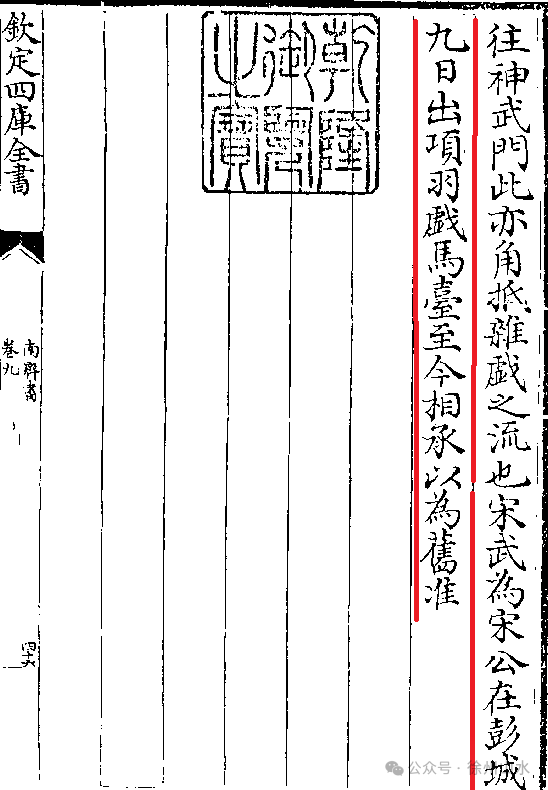 往神武門此亦角抵雜戯之流也宋武為宋公在彭城
九日出項羽戯馬臺至今相承以為舊准
乾隆
御覽
之寶
欽定四庫全書
南齊書
卷九
四十六
公众号·徐州
水